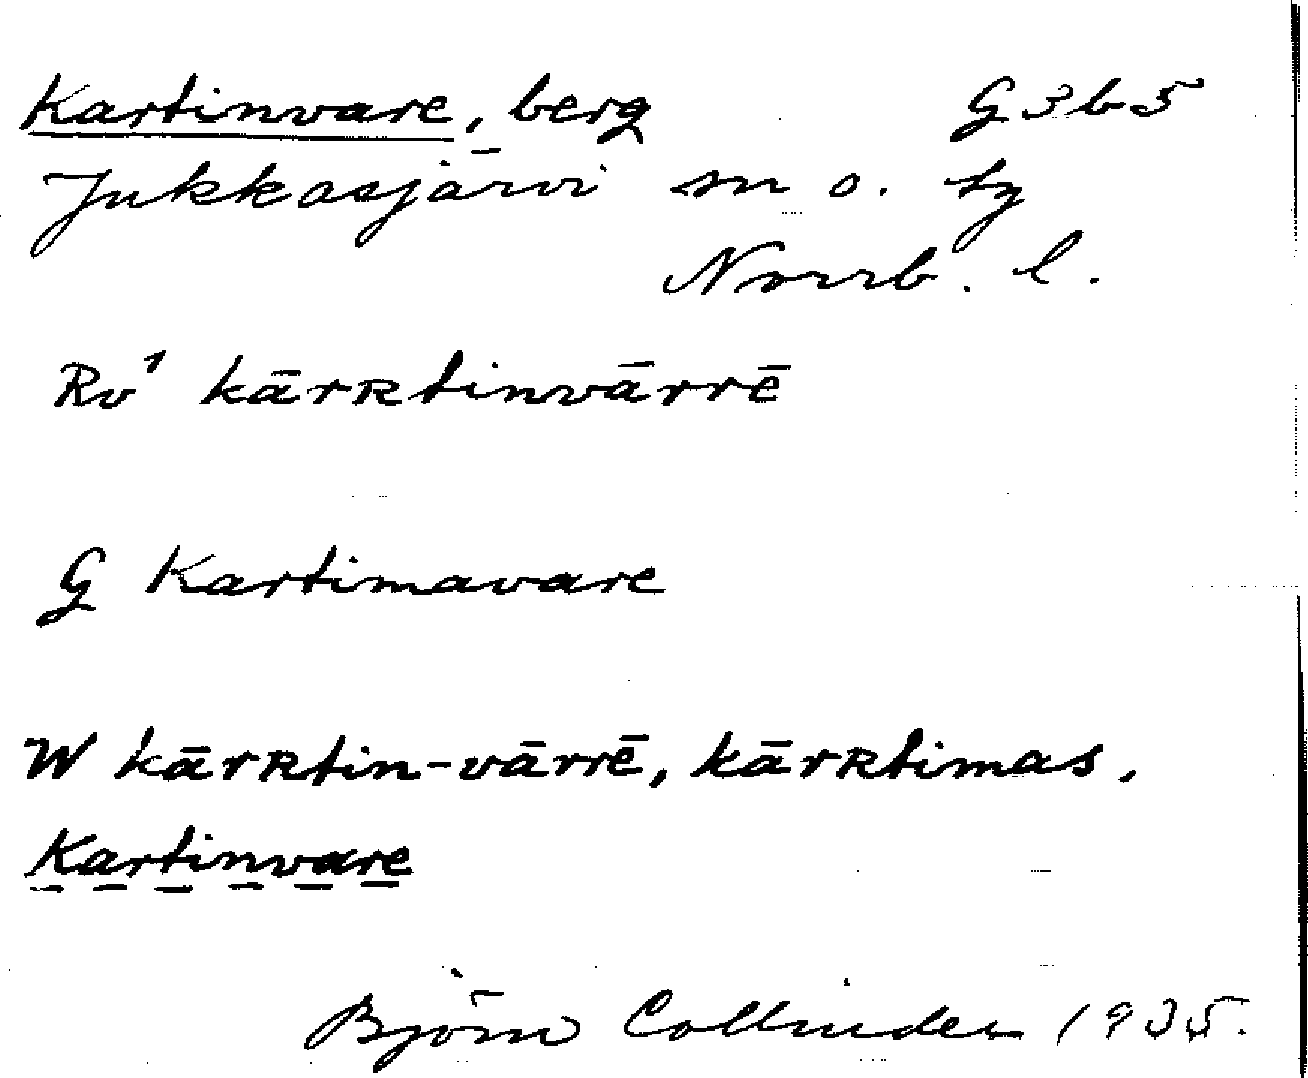 Kartinvare, berg G3b5
Jukkasjärvi sn o. tg
Norrb. l.
Rv¹ kārʀtinvārrē
G Kartimavare
W kārʀtin-vārrē, kārʀtimas,
Kartinvare
Björn Collinder 1935.